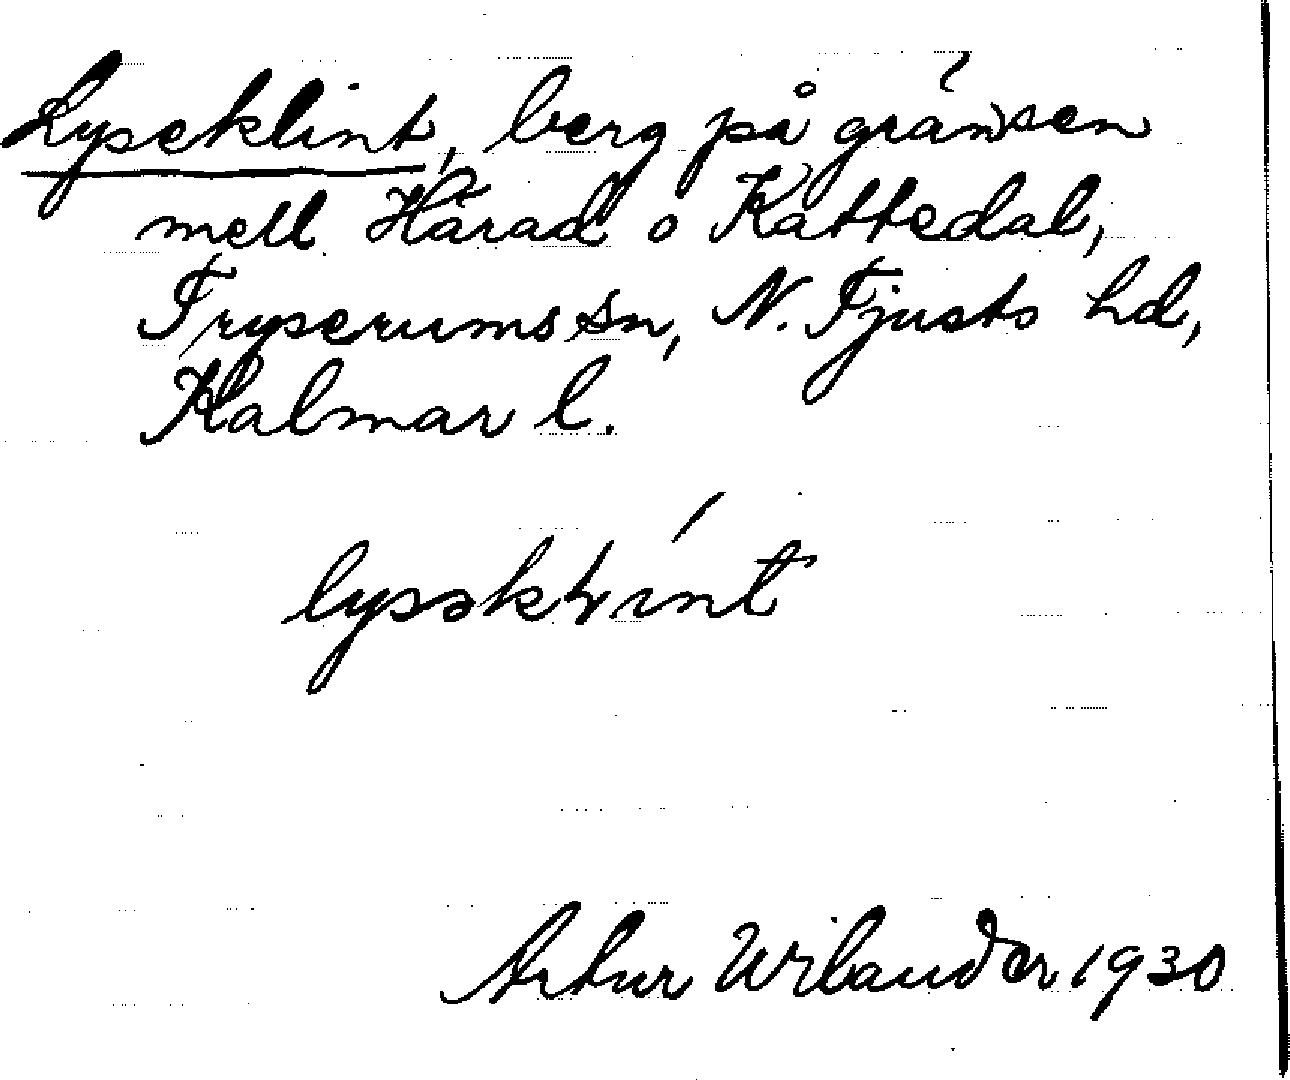 Lyseklint, berg på gränsen
mell. Hårad o Kattedal,
Tryserums sn, N. Tjusts hd,
Kalmar l.
lysəkłínt
Artur Wilander 1930